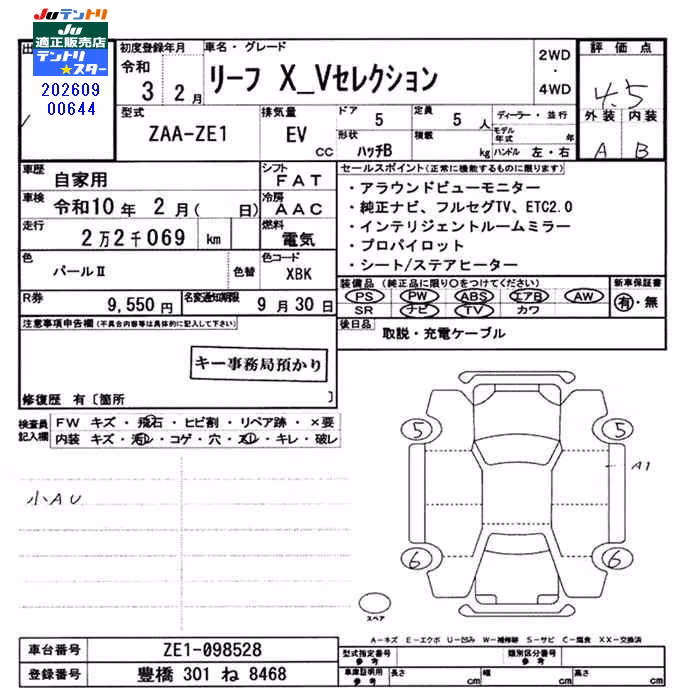 Juテントリ
Ju
適正販売店
テントリ
★スター
202609
00644
出
初度登録年月
令和
3 2月
車名・グレード
リーフ X_Vセレクション
2WD
・
4WD
評価点
4.5
外装 内装
A B
型式
ZAA-ZE1
排気量
EV
cc
ドア
5
定員
5 人
形状
ハッチB
積載
kg
ディーラー・並行
モデル年式 年
ハンドル 左・右
車歴
自家用
シフト
FAT
車検
令和10年 2月( 日)
冷房
AAC
走行
2万2千069 km
燃料
電気
色
パールⅡ
色替
色コード
XBK
R券
9,550円
名変通知期限
9月30日
セールスポイント(正常に機能するものに限ります)
・アラウンドビューモニター
・純正ナビ、フルセグTV、ETC2.0
・インテリジェントルームミラー
・プロパイロット
・シート/ステアヒーター
装備品(純正品に限り○をつけてください)
PS PW ABS エアB AW
SR ナビ TV カワ
新車保証書
有・無
後日品
取説・充電ケーブル
注意事項申告欄(不具合内容等は具体的に記入して下さい)
キー事務局預かり
修復歴 有〔箇所 〕
検査員
記入欄
FW キズ・飛石・ヒビ割・リペア跡・×要
内装 キズ・汚レ・コゲ・穴・スレ・キレ・破レ
小AU
5
5
A1
6
6
スペア
A-キズ E-エクボ U-凹み W-補修跡 S-サビ C-腐食 XX-交換済
車台番号
ZE1-098528
登録番号
豊橋 301 ね 8468
型式指定番号
参考
類別区分番号
参考
車庫証明用
参考
長さ cm
幅 cm
高さ cm